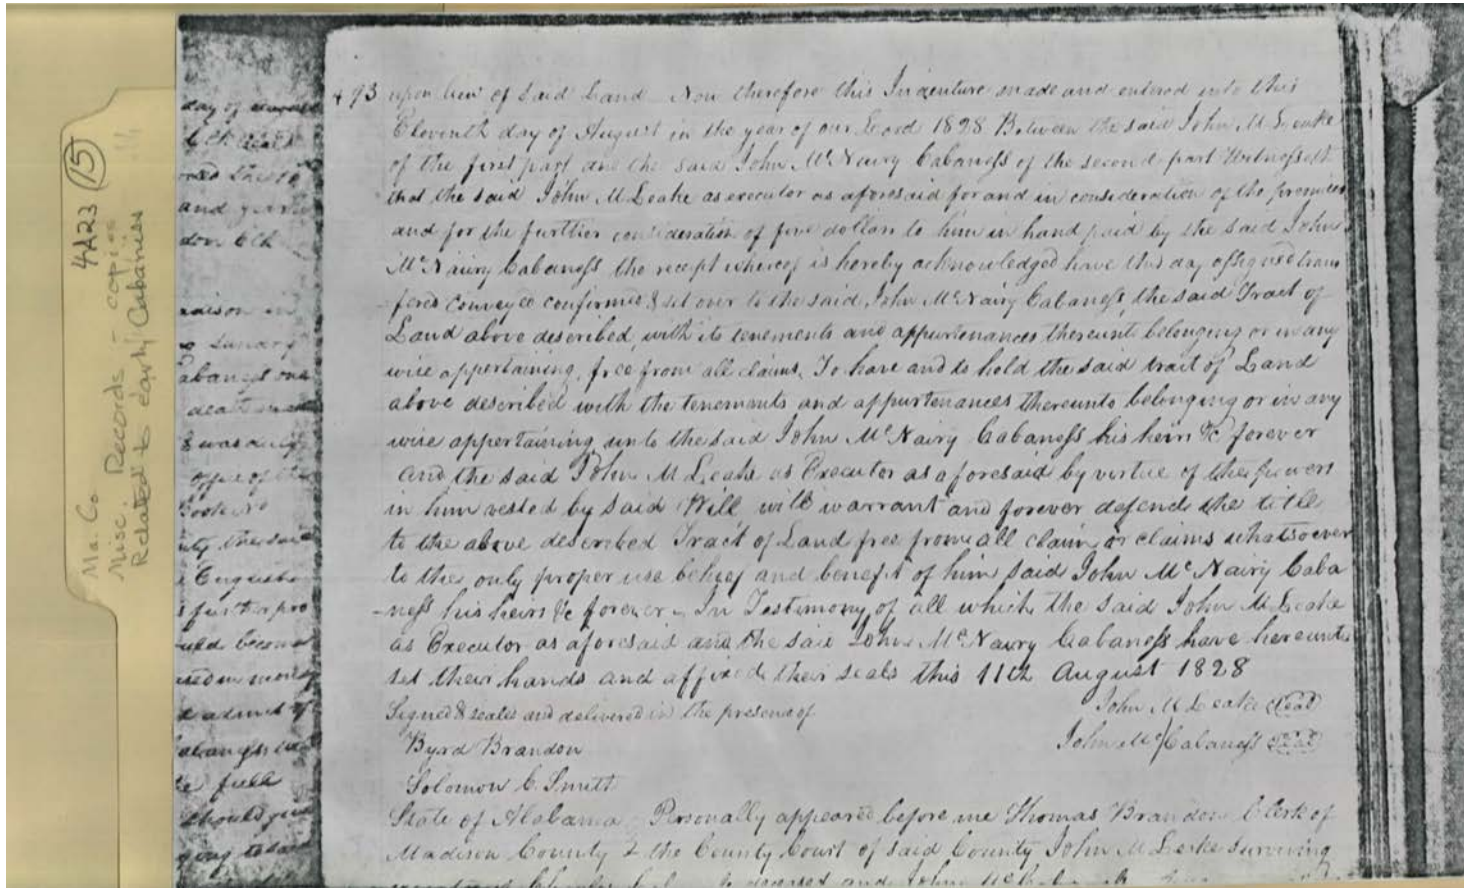 4A23 (15)
Ma. Co
Misc. Records - copies
Related to early Cabaniss
day of
and
Cabaness one
death
was a
office of the
Book No
the said
further pro
become
admr of
full
should give
493 upon view of said Land Now therefore this Indenture made and entered into this
Eleventh day of August in the year of our Lord 1828 Between the said John M Leake
of the first part and the said John McNairy Cabaness of the second part Witnesseth
that the said John M Leake as executor as aforesaid for and in consideration of the premises
and for the further consideration of five dollars to him in hand paid by the said John
McNairy Cabaness the recept whereof is hereby acknowledged have this day assigned trans
fered conveyed confirmed & set over to the said John McNairy Cabaness, the said Tract of
Land above described, with its tenements and appurtenances thereunto belonging or in any
wise appertaining, free from all claims, To have and to hold the said tract of Land
above described with the tenements and appurtenances thereunto belonging or in any
wise appertaining unto the said John McNairy Cabaness his heirs &c forever
and the said John M Leake as Executor as aforesaid by virtue of the powers
in him vested by said Will will warrant and forever defend the title
to the above described Tract of Land free from all claim or claims whatsoever
to the only proper use behoof and benefit of him said John McNairy Caba
-ness his heirs &c forever - In Testimony of all which the said John M Leake
as Executor as aforesaid and the said John McNairy Cabaness have hereunto
set their hands and affixed their seals this 11th August 1828
Signed & sealed and delivered in the presence of John M Leake (Seal)
Byrd Brandon John Mc Cabaness (Seal)
Solomon C. Smith
State of Alabama Personally appeared before me Thomas Brandon Clerk of
Madison County the County Court of said County John M Leake surviving
deceased and John